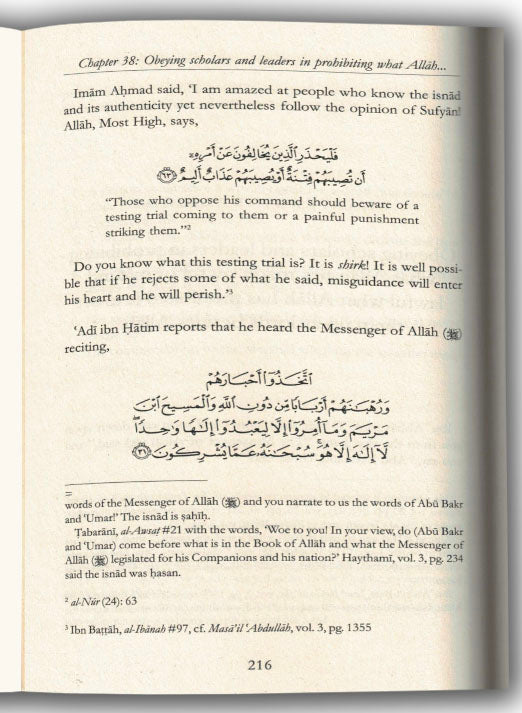 Chapter 38: Obeying scholars and leaders in prohibiting what Allāh...
Imām Aḥmad said, ‘I am amazed at people who know the isnād
and its authenticity yet nevertheless follow the opinion of Sufyān!
Allāh, Most High, says,
فَلْيَحْذَرِ ٱلَّذِينَ يُخَالِفُونَ عَنْ أَمْرِهِۦٓ
أَن تُصِيبَهُمْ فِتْنَةٌ أَوْ يُصِيبَهُمْ عَذَابٌ أَلِيمٌ ﴿٦٣﴾
“Those who oppose his command should beware of a
testing trial coming to them or a painful punishment
striking them.”²
Do you know what this testing trial is? It is shirk! It is well possi-
ble that if he rejects some of what he said, misguidance will enter
his heart and he will perish.’³
‘Adī ibn Ḥātim reports that he heard the Messenger of Allāh (ﷺ)
reciting,
ٱتَّخَذُوٓا۟ أَحْبَارَهُمْ
وَرُهْبَـٰنَهُمْ أَرْبَابًا مِّن دُونِ ٱللَّهِ وَٱلْمَسِيحَ ٱبْنَ
مَرْيَمَ وَمَآ أُمِرُوٓا۟ إِلَّا لِيَعْبُدُوٓا۟ إِلَـٰهًا وَٰحِدًا ۖ
لَّآ إِلَـٰهَ إِلَّا هُوَ ۚ سُبْحَـٰنَهُۥ عَمَّا يُشْرِكُونَ ﴿٣١﴾
=
words of the Messenger of Allāh (ﷺ) and you narrate to us the words of Abū Bakr
and ‘Umar!’ The isnād is ṣaḥīḥ.
Ṭabarānī, al-Awsaṭ #21 with the words, ‘Woe to you! In your view, do (Abū Bakr
and ‘Umar) come before what is in the Book of Allāh and what the Messenger of
Allāh (ﷺ) legislated for his Companions and his nation?’ Haythamī, vol. 3, pg. 234
said the isnād was ḥasan.
² al-Nūr (24): 63
³ Ibn Baṭṭāh, al-Ibānah #97, cf. Masā’il ‘Abdullāh, vol. 3, pg. 1355
216